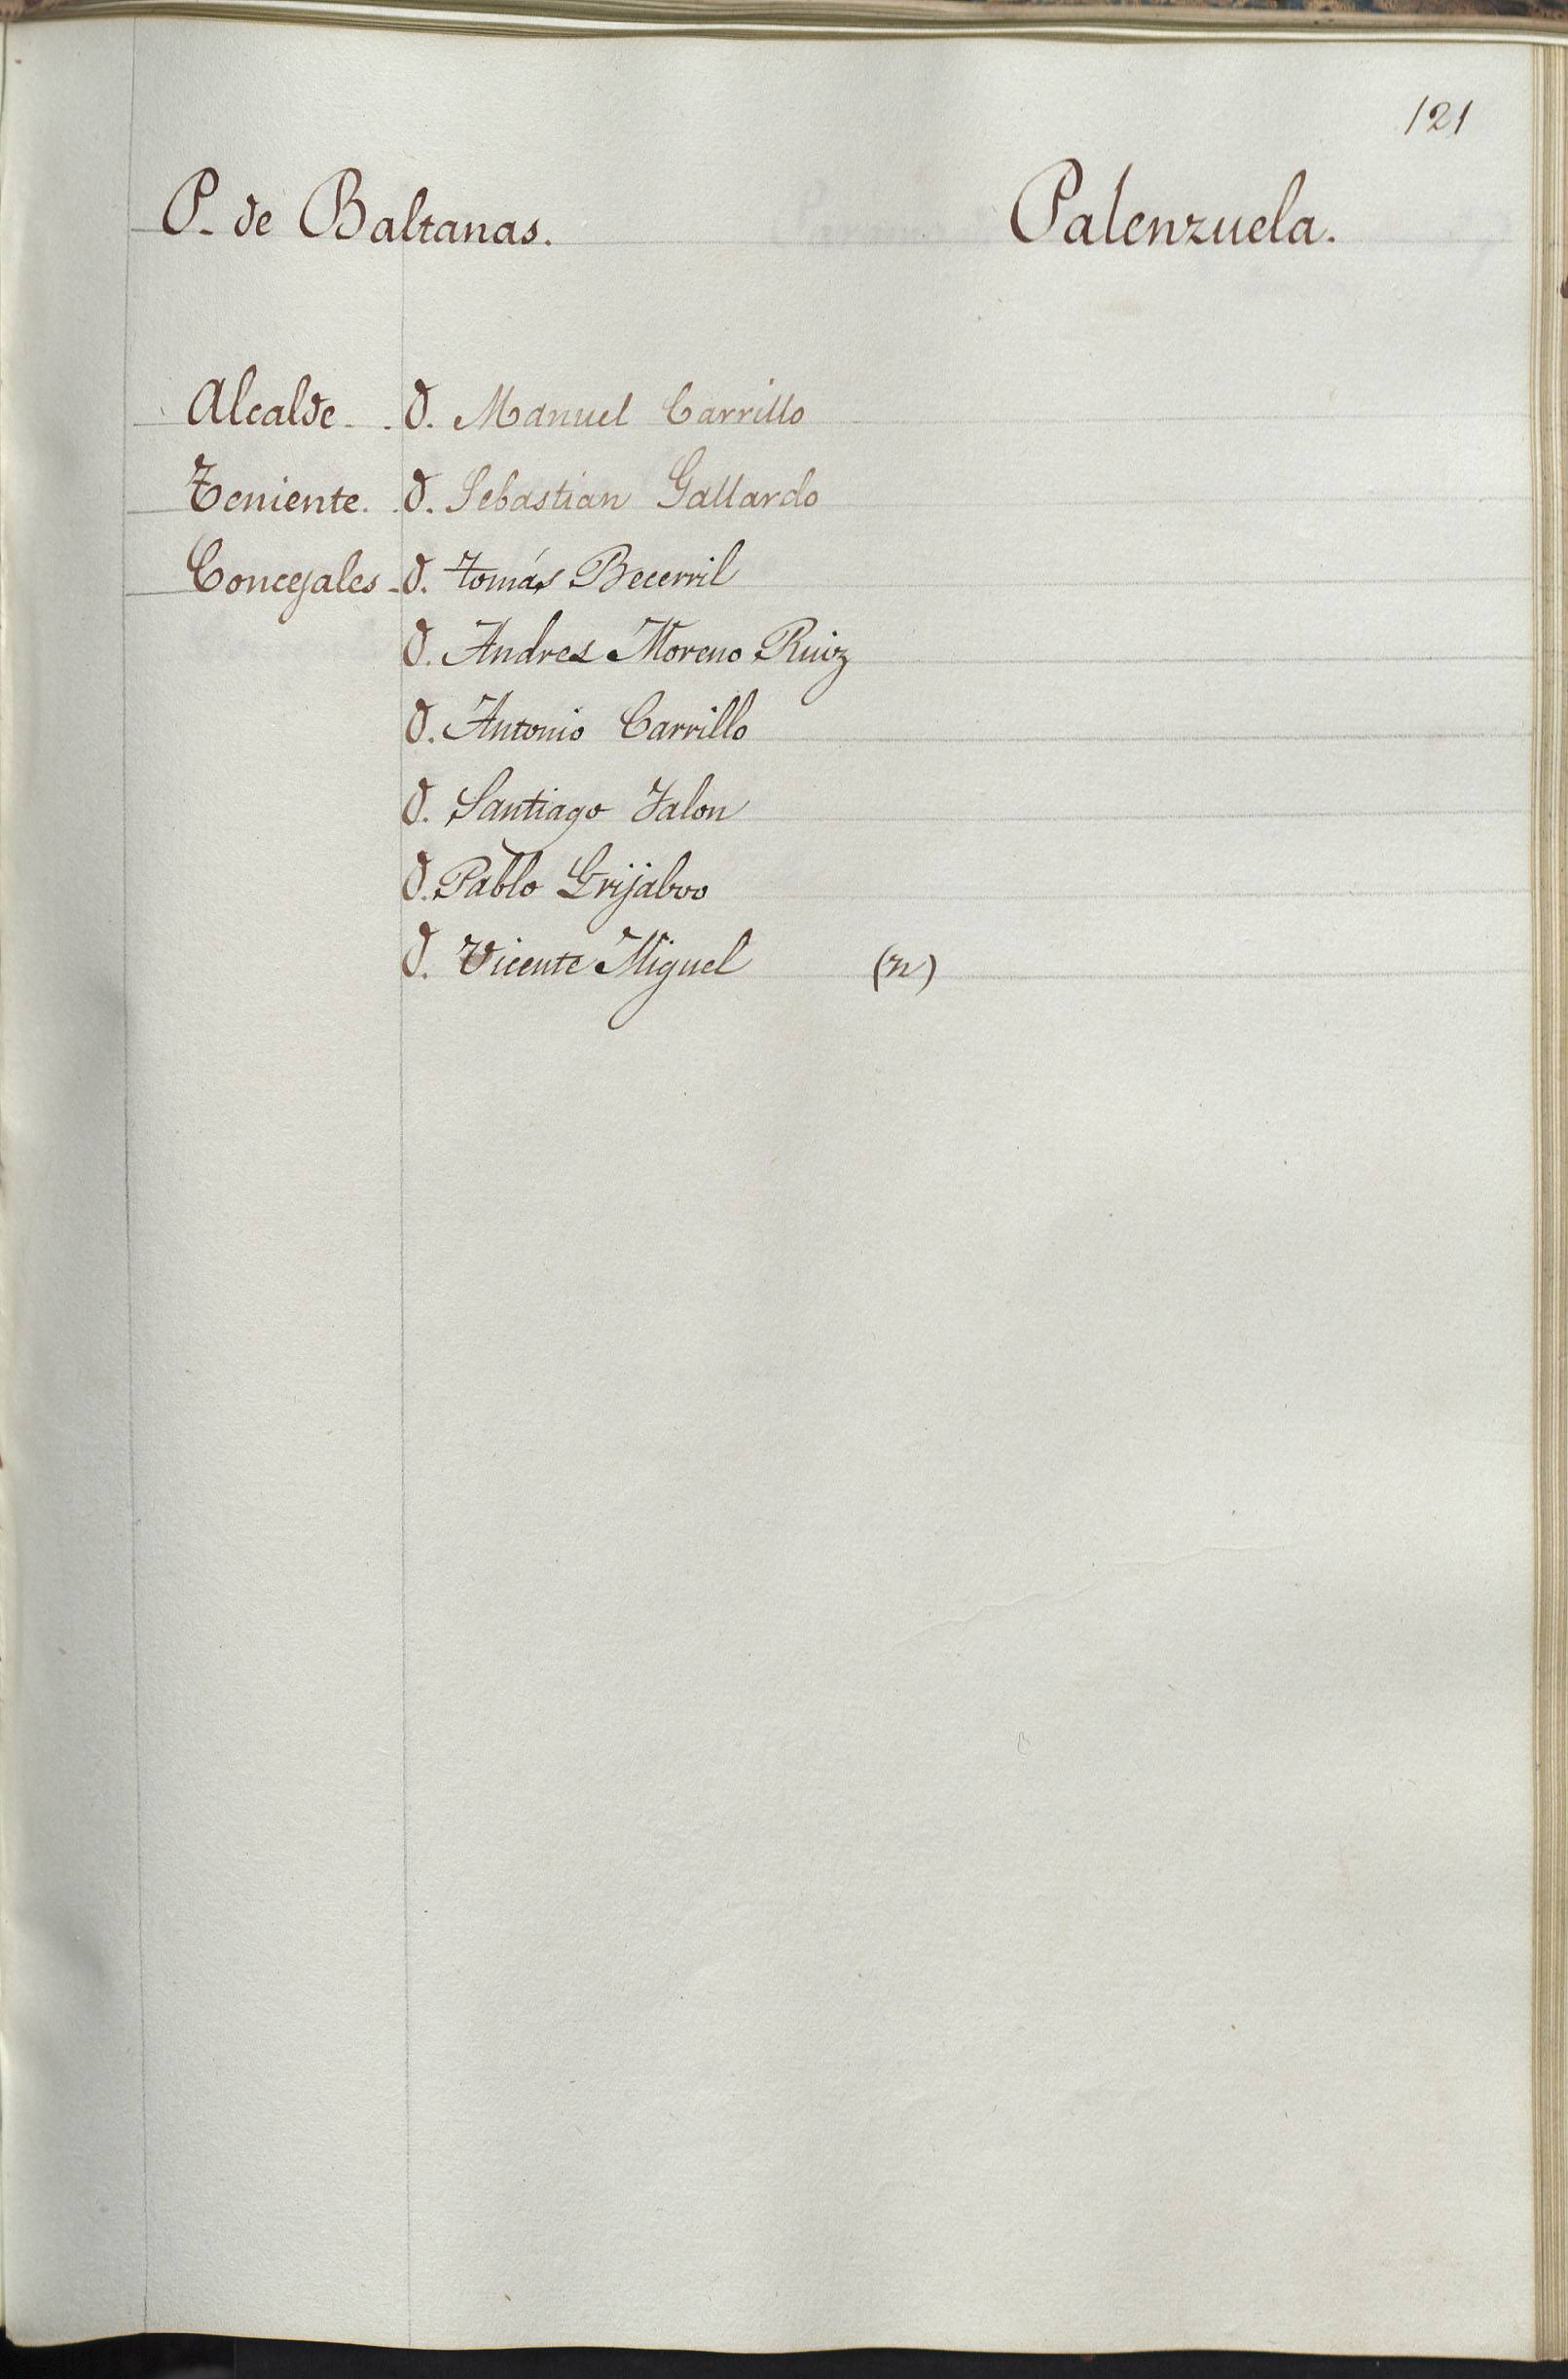 121
P. de Baltanas. Palenzuela.
Alcalde - . D. Manuel Carrillo
Teniente. . D. Sebastian Gallardo
Concejales - D. Tomás Becerril
D. Andres Moreno Ruiz
D. Antonio Carrillo
D. Santiago Jalon
D. Pablo Grijalvo
D. Vicente Miguel (n)